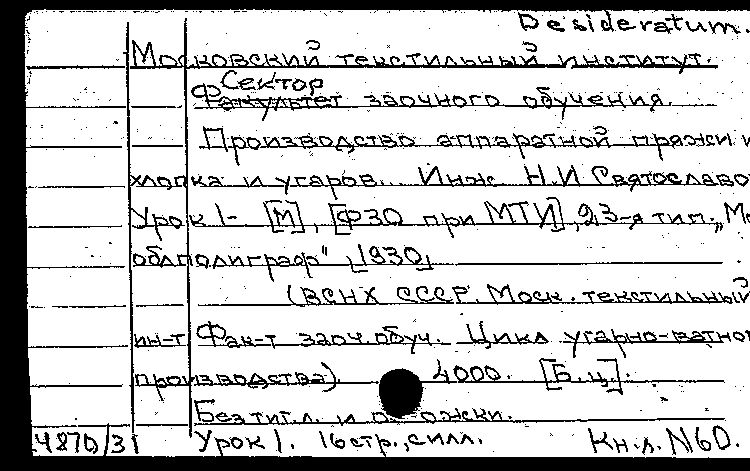 Desideratum.
Московский текстильный институт.
Сектор
Факультет заочного обучения.
Производство аппаратной пряжи и
хлопка и угаров... Инж Н.И Святославо
Урок 1- [М], [ФЗО при МТИ], 23-я тип. „Мо
облполиграф" [1930]
(ВСНХ СССР. Моск. текстильный
ин-т Фак-т заоч. обуч. Цикл угарно-ватно
производства). 4000. [Б.ц.].
Без тит. л. и
4870/31 Урок 1. 16 стр., с илл. Кн. л. N60.